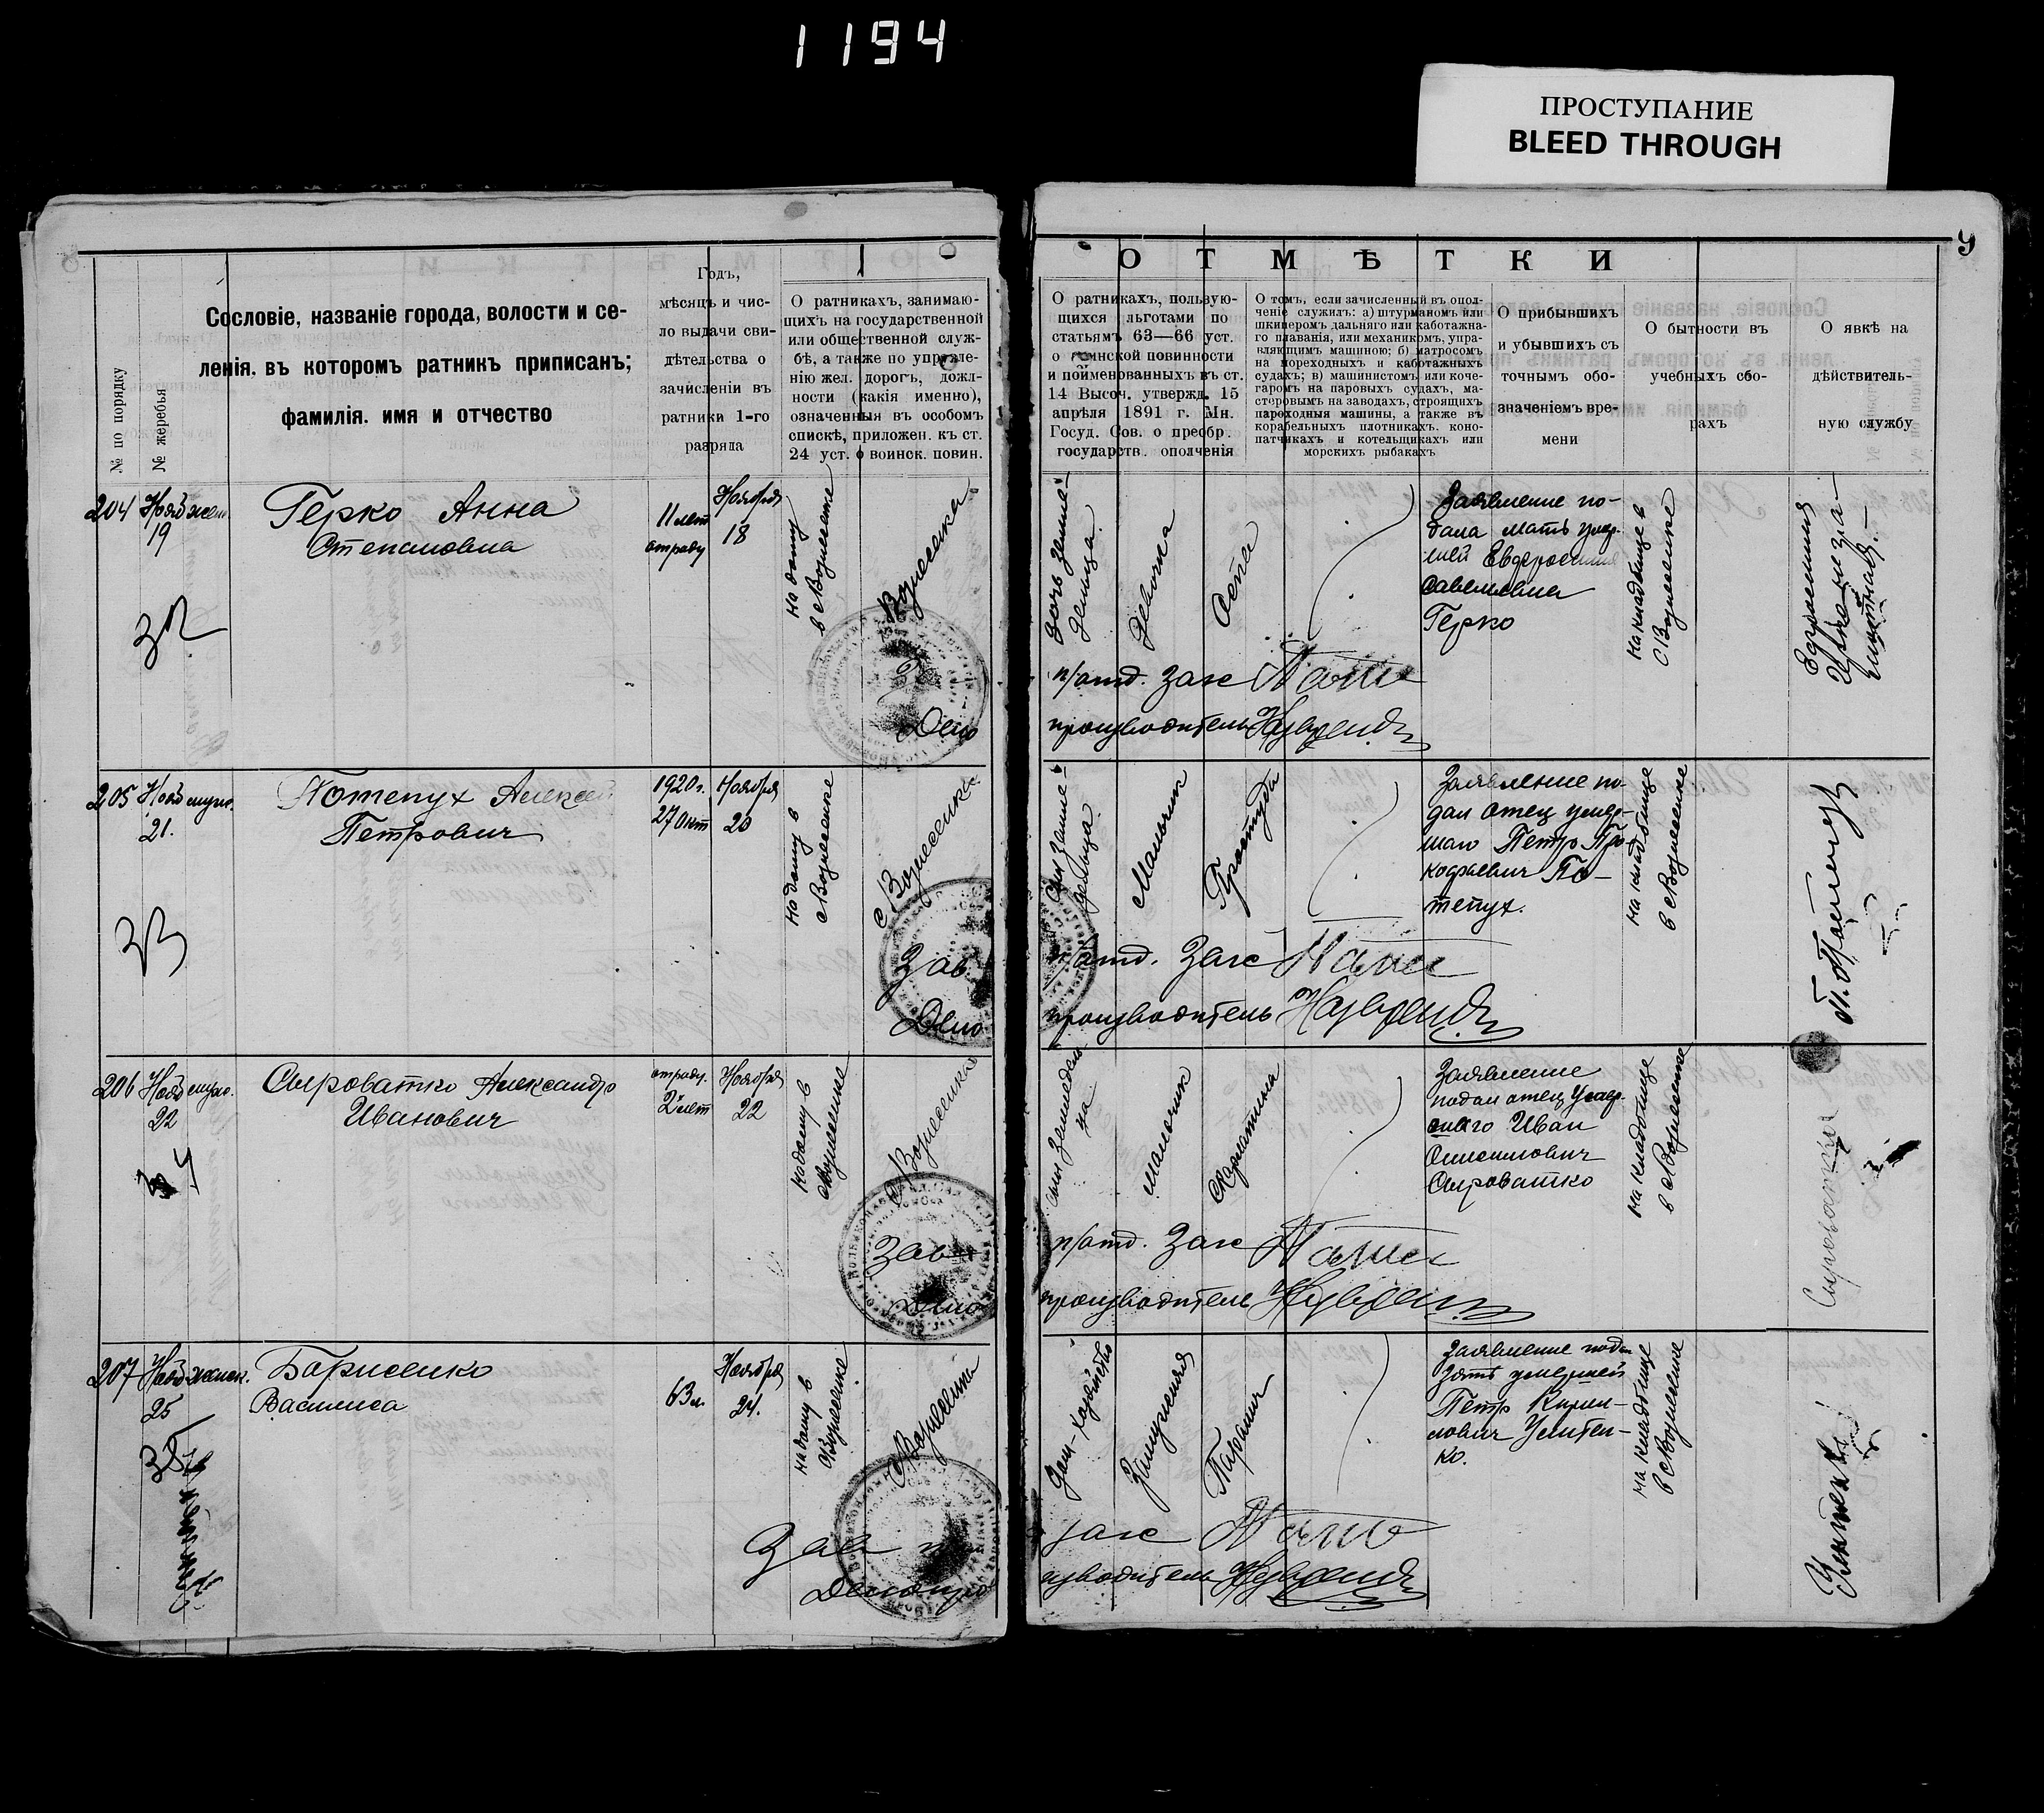 1194
ПРОСТУПАНИЕ
BLEED THROUGH
9
№ по порядку
№ жеребья
Сословіе, названіе города, волости и се-
ленія. въ которомъ ратникъ приписанъ;
фамилія. имя и отчество
Годъ,
мѣсяцъ и чис-
ло выдачи сви-
дѣтельства о
зачисленіи въ
ратники 1-го
разряда
О ратникахъ, занимаю-
щихъ на государственной
или общественной служ-
бѣ, а также по управле-
нію жел. дорогъ, дожл-
ности (какія именно),
означенныя въ особомъ
спискѣ, приложен. къ ст.
24 уст. о воинск. повин.
ОТМѢТКИ
О ратникахъ, пользую-
щихся льготами по
статьямъ 63—66 уст.
о воинской повинности
и поименованныхъ въ ст.
14 Высоч. утвержд. 15
апрѣля 1891 г. Мн.
Госуд. Сов. о преобр.
государств. ополченія
О томъ, если зачисленный въ опол-
ченіе служилъ: а) штурманомъ или
шкиперомъ дальняго или каботажна-
го плаванія, или механикомъ, упра-
вляющимъ машиною; б) матросомъ
на мореходныхъ и каботажныхъ
судахъ; в) машинистомъ или коче-
гаромъ на паровыхъ судахъ, ма-
стеровымъ на заводахъ, строящихъ
пароходныя машины, а также въ
корабельныхъ плотникахъ. коно-
патчикахъ и котельщикахъ или
морскихъ рыбакахъ
О прибывшихъ
и убывшихъ съ
точнымъ обо-
значеніемъ вре-
мени
О бытности въ
учебныхъ сбо-
рахъ
О явкѣ на
дѣйствитель-
ную службу
204 Нояб жен.
19
Герко Анна
Степановна
11 лет
отроду
Ноября
18
на дому
в с Вознесенке
Вознесенка
32
Дело
дочь земле-
дельца
девочка
Оспа
Заявление по-
дала мать умер-
шей Евфросиния
Савельевна
Герко
на кладбище в
с Вознесенке
п/отд. Загс
производитель
205 Нояб мужс.
21.
Потепух Алексей
Петрович
1920 г.
27 окт
Ноября
20
на дому в
с Вознесенке
с Вознесенка
33
Зав.
Дело
сын земле-
дельца
Мальчик
Простуда
Заявление по-
дал отец умер-
шаго Петр Про-
кофьевич По-
тепух.
на кладбище
в с Вознесенке
П. Потепух
п/отд. Загс
производитель
206 Нояб мужс.
22
Сыроватко Александр
Иванович
отроду.
2 лет
Ноября
22
на дому в
с Вознесенке
с Вознесенка
34
Зав
Дело
сын земледель-
ца
Мальчик
Скарлатина
Заявление
подал отец умер-
шаго Иван
Онисимович
Сыроватко
на кладбище
в с Вознесенке
Сыроватко
п/отд. Загс
производитель
207 Нояб женск.
25
Борисенко
Василиса
63 л.
Ноября
24.
на дому в
с Вознесенке
с Вознесенка
35
Зав
Делопро
дом-хозяйство
Замужняя
Паралич
Заявление подал
зять умершей
Петр Кирил-
лович Усатен-
ко.
на кладбище
в с Вознесенке
загс
изводитель